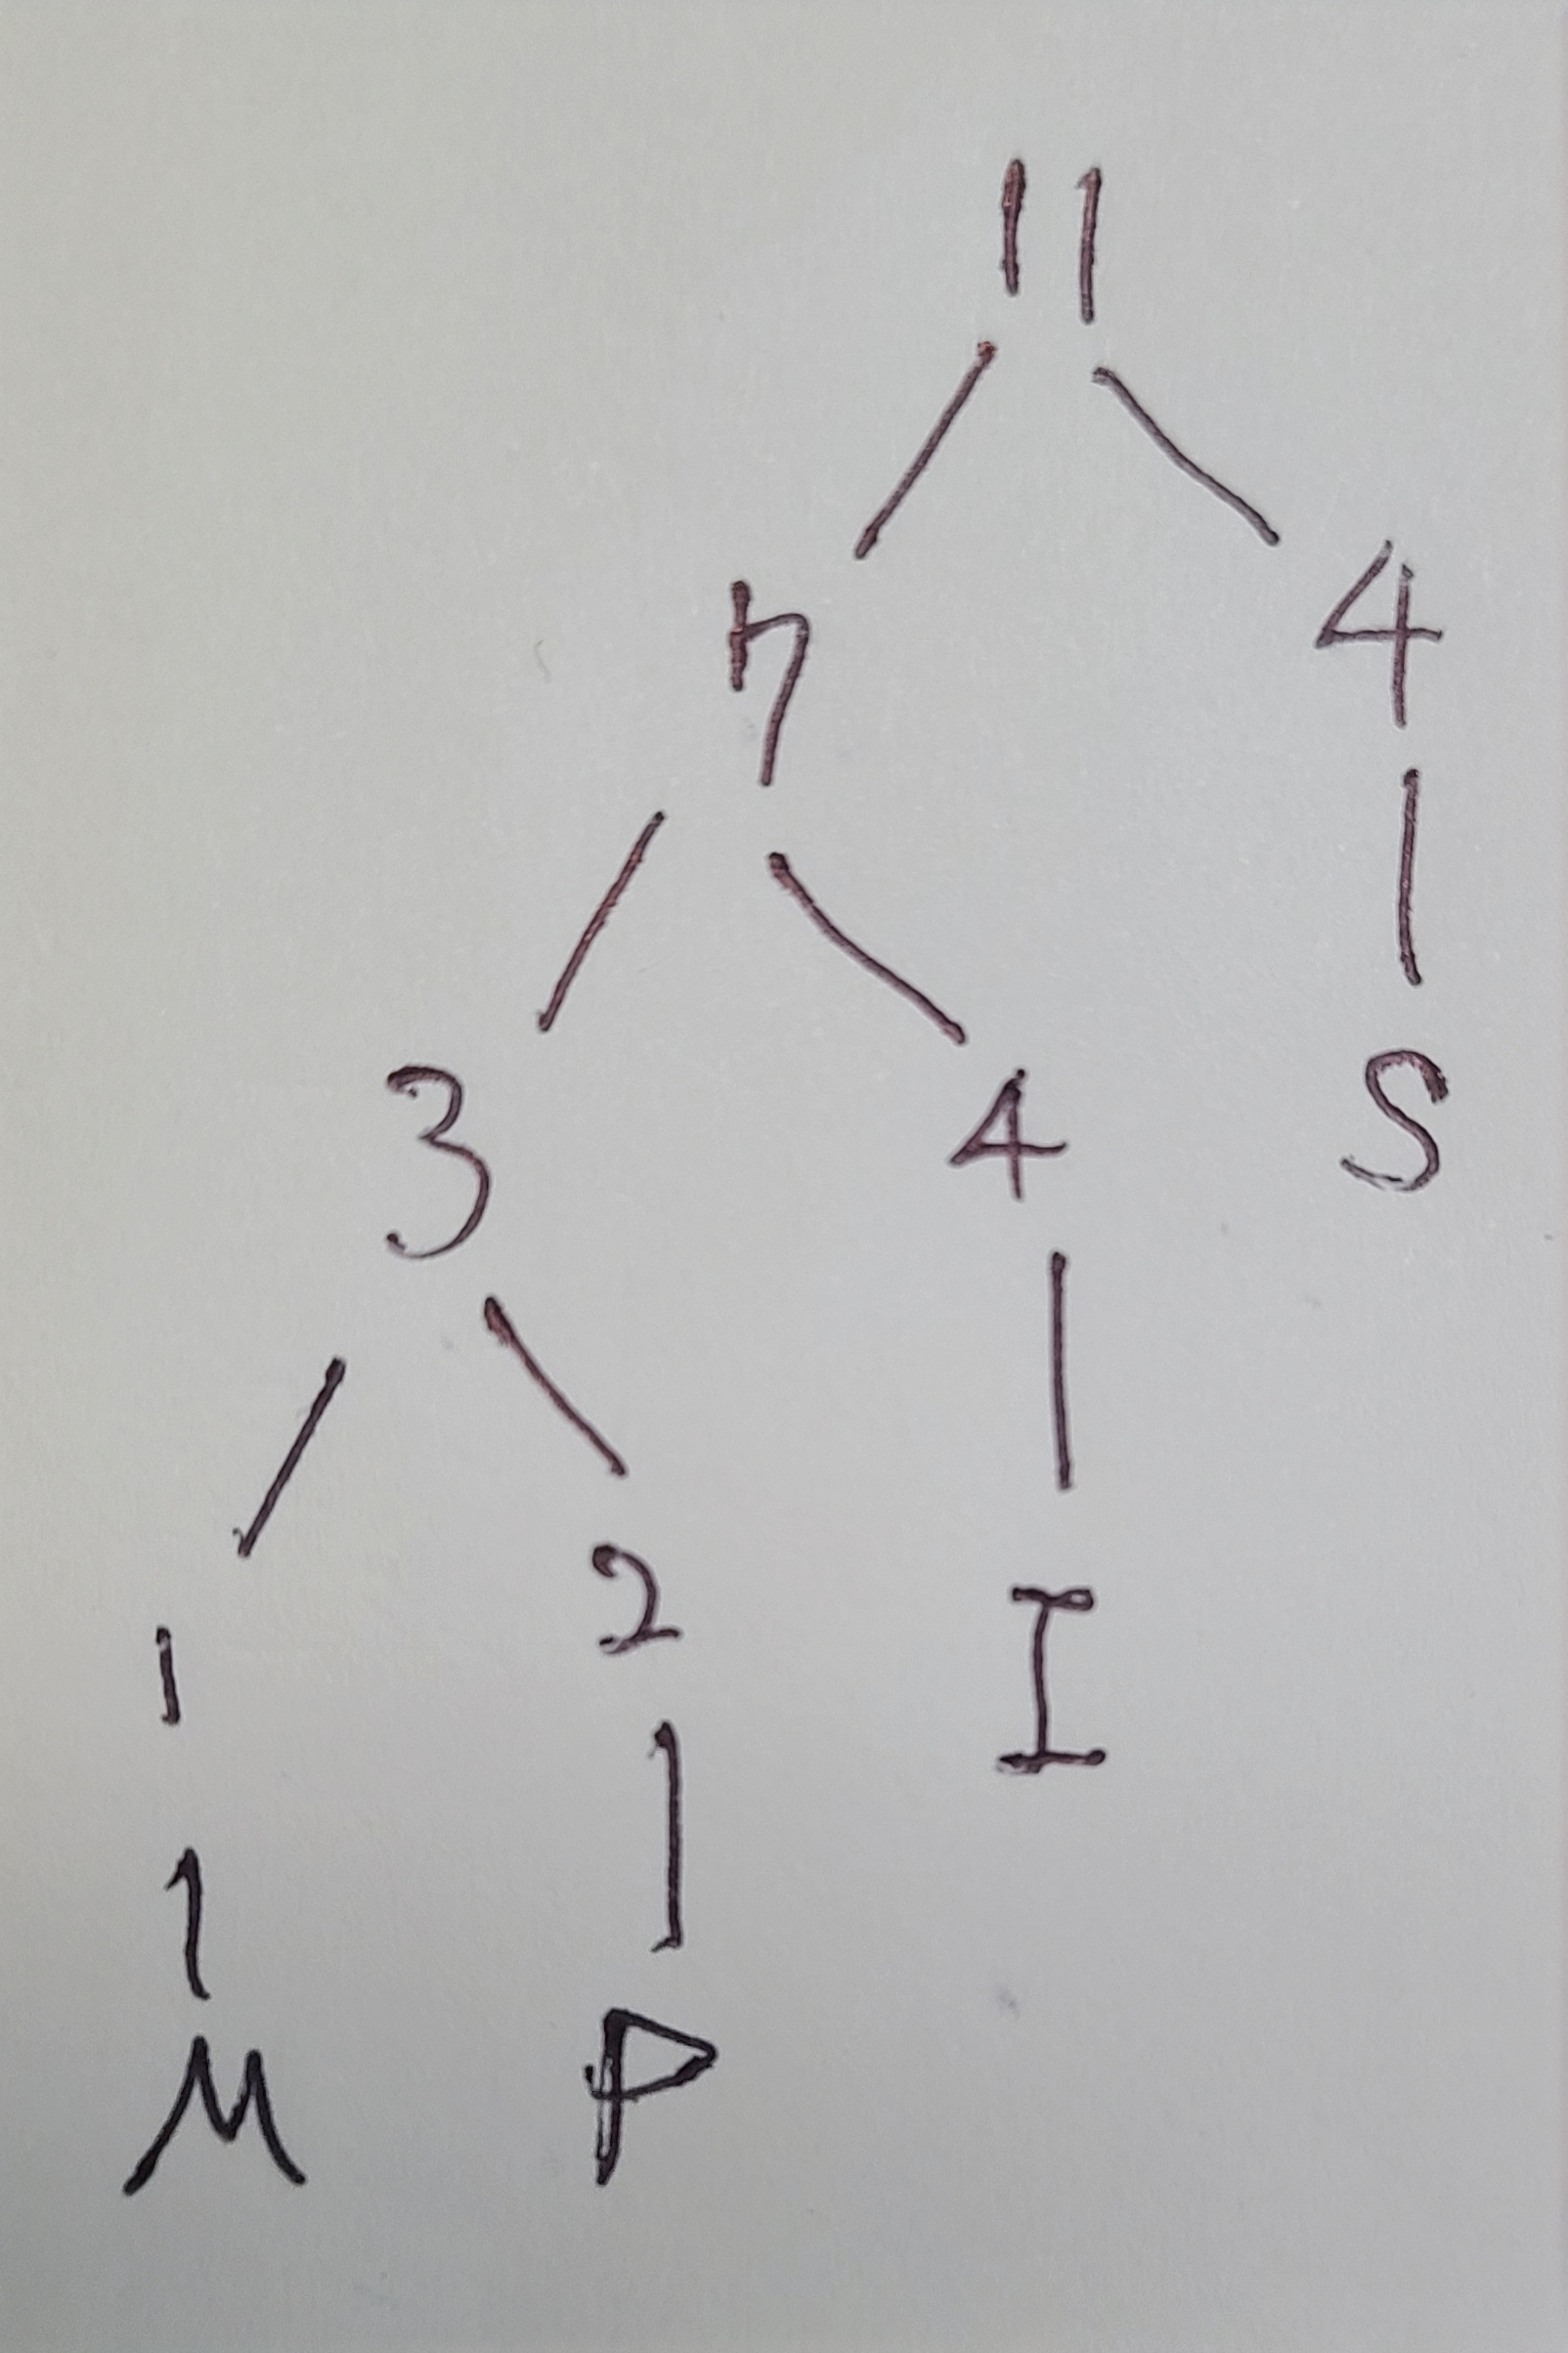 11
7 4
3 4 S
1 2 I
M P